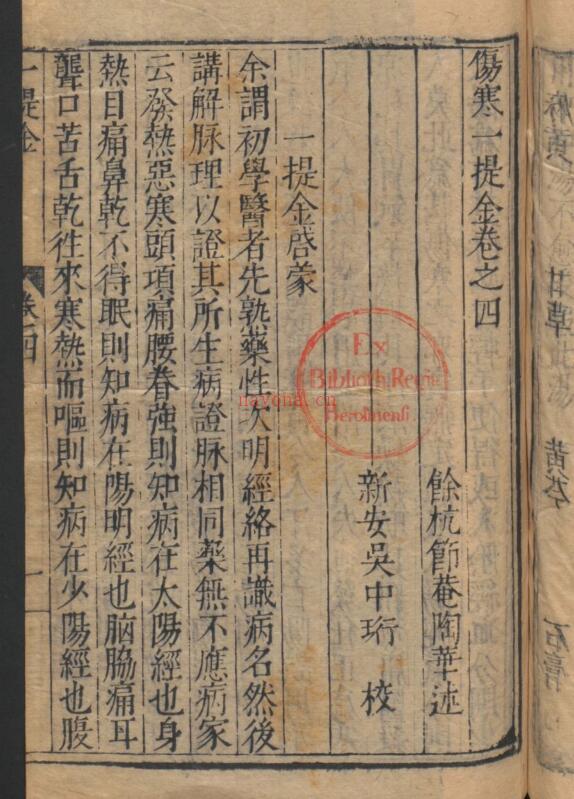 傷寒一提金卷之四
餘杭節菴陶華述
新安吳中珩 校
一提金啓蒙
余謂初學醫者先熟藥性次明經絡再識病名然後
講解脉理以證其所生病證脉相同藥無不應病家
云發熱惡寒頭項痛腰脊強則知病在太陽經也身
熱目痛鼻乾不得眠則知病在陽明經也脑脇痛耳
聾口苦舌乾徃來寒熱而嘔則知病在少陽經也腹
一提金
卷四
一
Ex
Biblioth. Regia
Berolinensi.
nayona.cn
黃芩
石膏